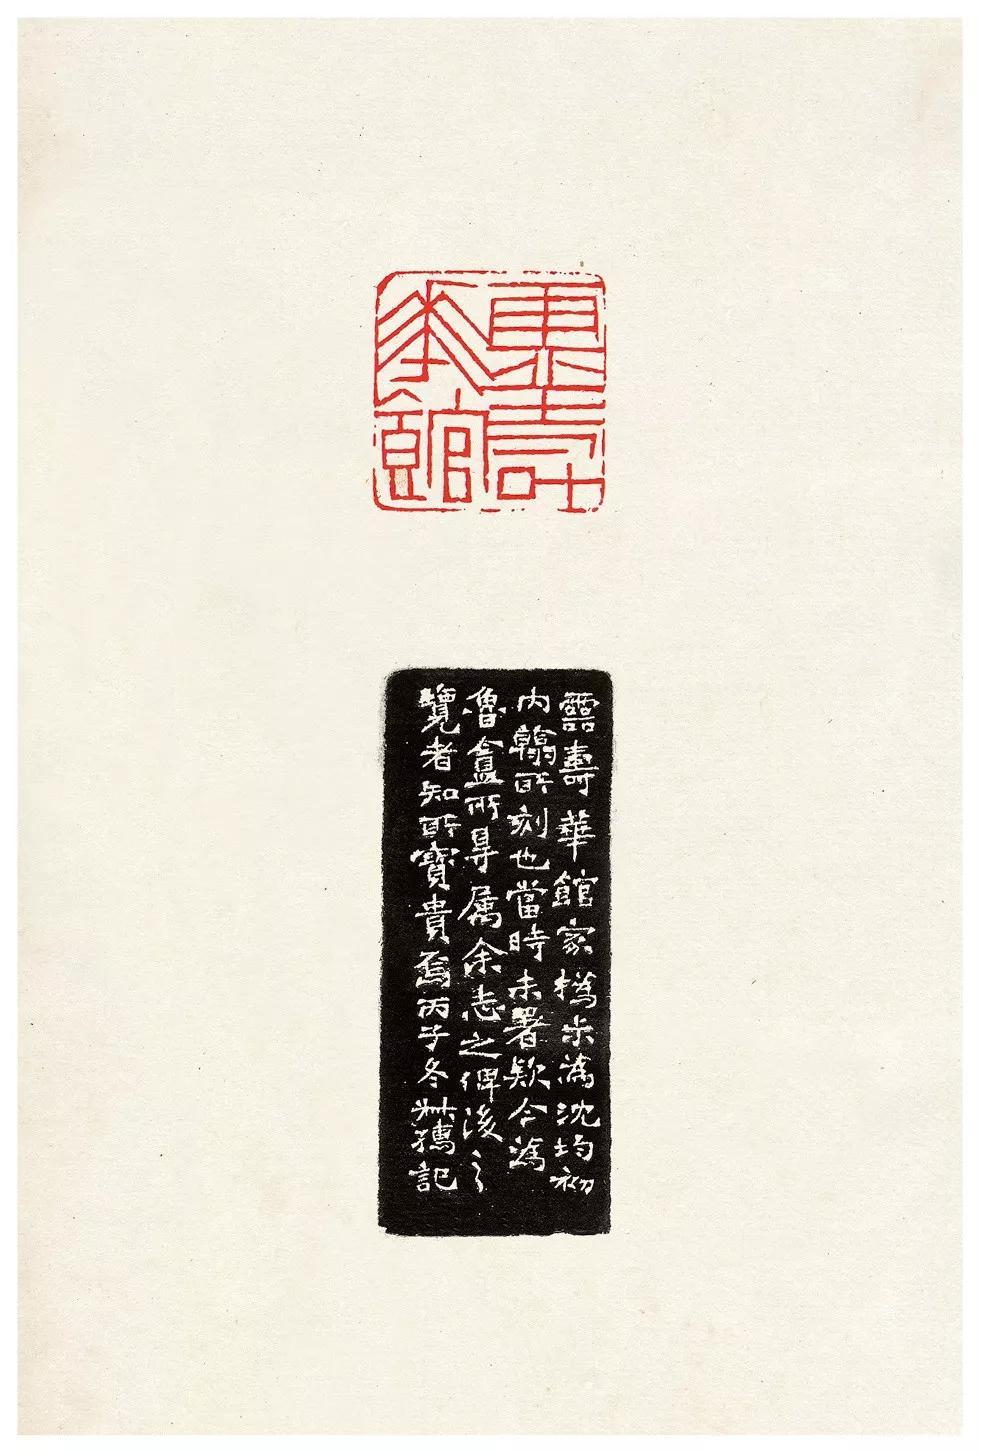 靈壽
華館
靈壽華館家撝尗為沈均初
内翰所刻也當時未署欵今為
魯盦所得属余志之俾後之
覽者知所寶貴焉丙子冬叔孺記